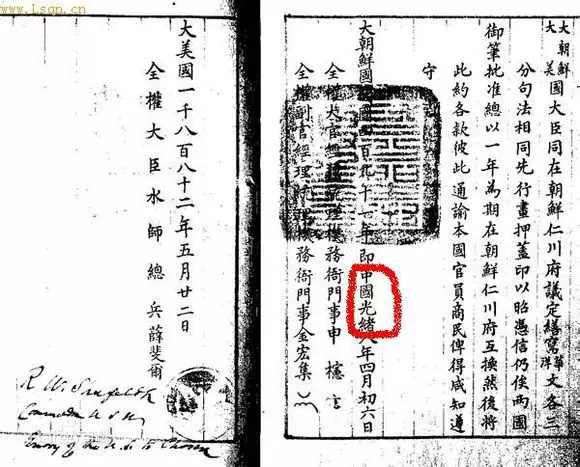 www.Lsqn.cn
大朝鮮
大美
國大臣同在朝鮮仁川府議定繕寫華洋文各三
分句法相同先行畫押蓋印以昭憑信仍俟兩國
御筆批准總以一年為期在朝鮮仁川府互換然後將
此約各款彼此通諭本國官員商民俾得咸知遵
守
大朝鮮國四百九十一年即中國光緒八年四月初六日
全權大官經理機務衙門事申櫶
全權副官經理機務衙門事金宏集
大美國一千八百八十二年五月廿二日
全權大臣水師總兵薛斐爾
R. W. Shufeldt
Commodore U.S.N.
Envoy of the U.S. to Chosen